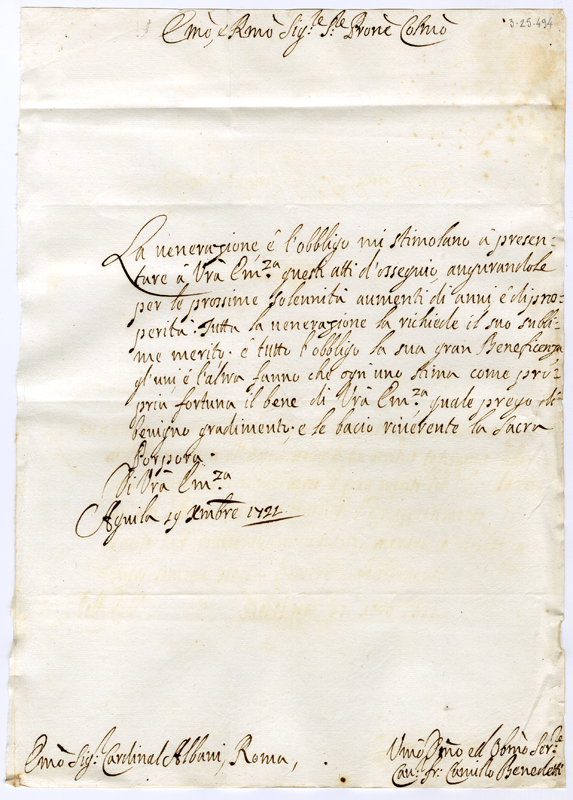 3-25-494
Emo, e Rmo Sig.re S.re Prone Colmo
La venerazione, è l'obbligo mi stimolano à presen-
tare a Vrà Em.za questi atti d'ossequio, augurandole
per le prossime solennità aumenti di anni, è di pros-
perità. Tutta la venerazione la richiede il suo subli-
me merito. è tutto l'obbligo la sua gran Beneficenza
gl'uni, è l'altra fanno che ogn'uno stima come pro-
pria fortuna il bene di Vrà Em.za quale prego di
benigno gradimento. e le bacio riverente la Sacra
Porpora.
Di Vrà Em.za
Aquila 19 Xmbre 1721.
Emò Sig.r Cardinal Albani, Roma,
Umo Dmo ed Obmo Ser.re
Cav. Fr. Camillo Benedetti